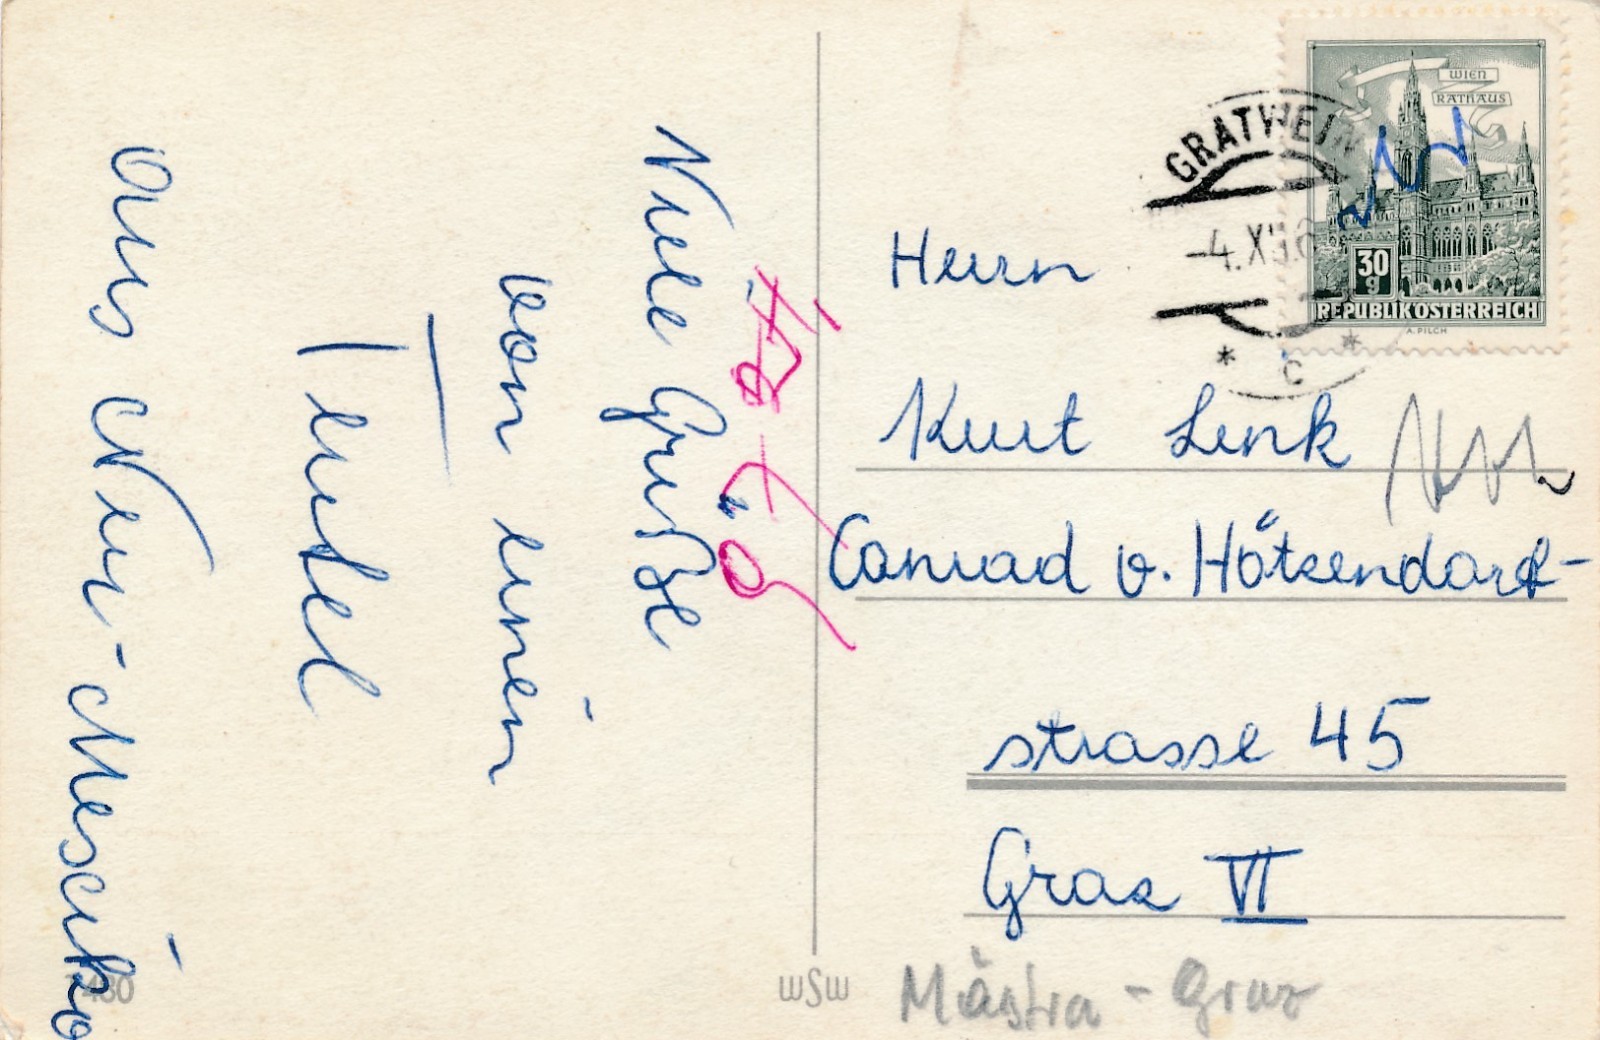 Viele Grüße
von einen
Teufel
aus Neu-Mexiko
WIEN
RATHAUS
30
g
REPUBLIK ÖSTERREICH
A. PILCH
GRATWEIN
-4.XII.6
* c *
Herrn
Kurt Link
Conrad v. Hötzendorf-
strasse 45
Graz VI
wSw
Graz